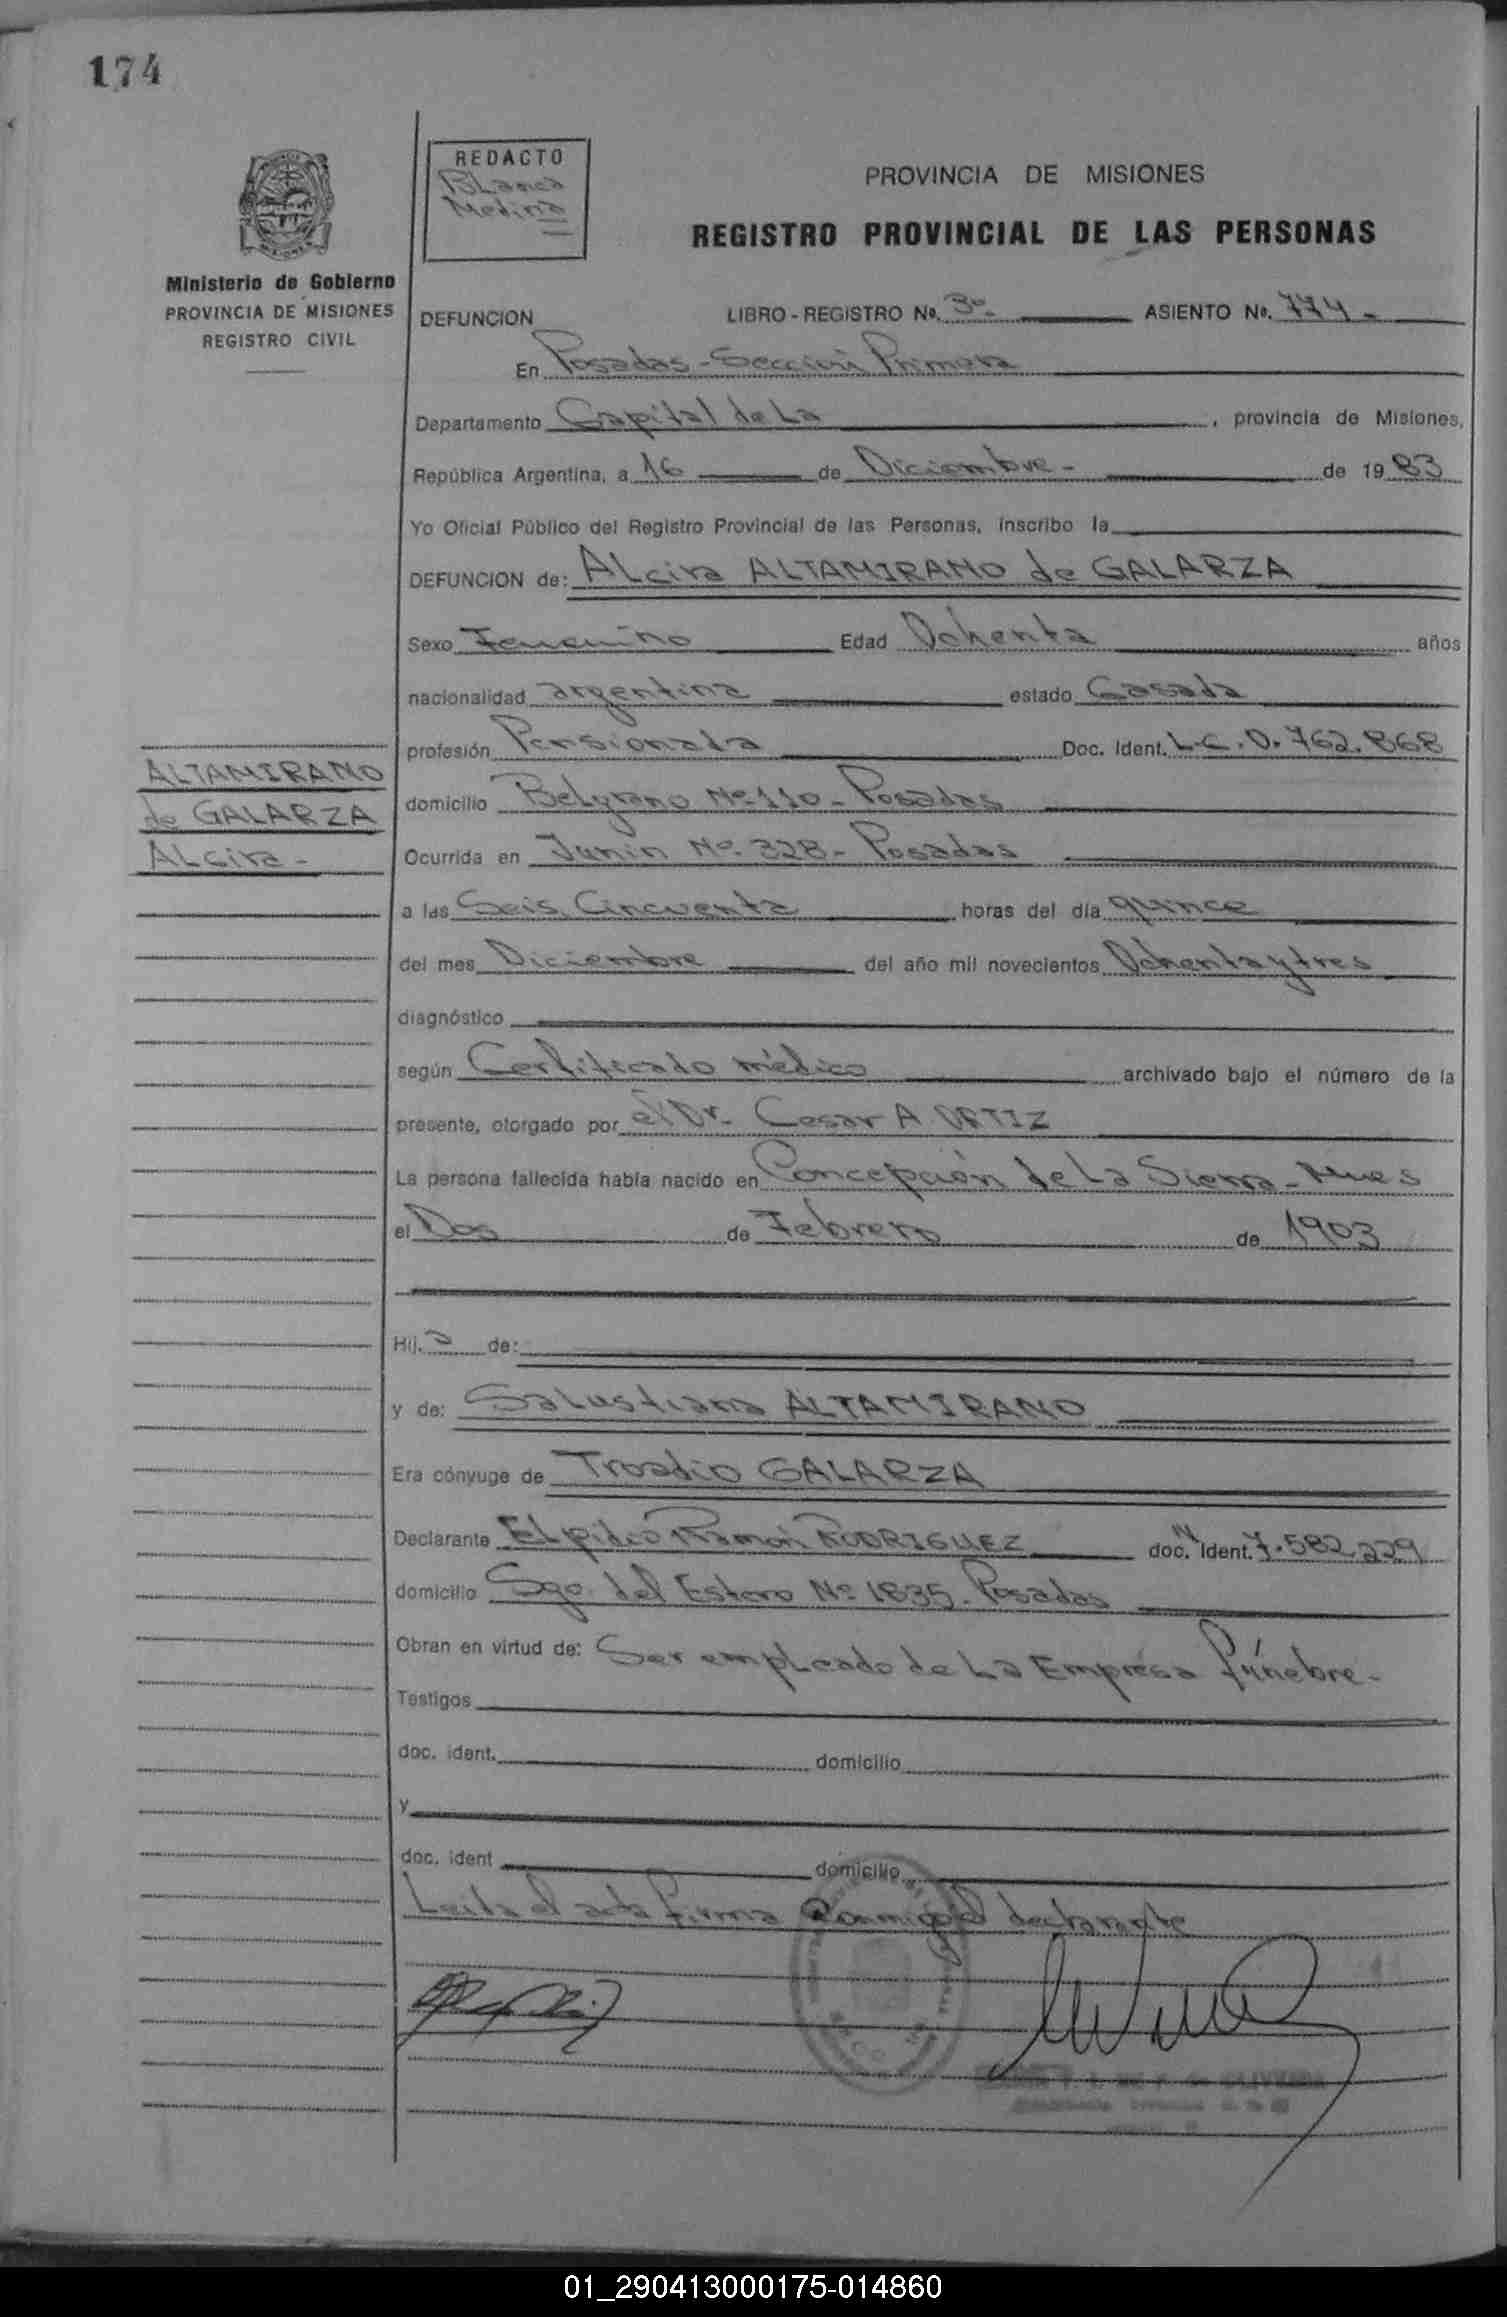 174
REDACTO
Blanca
Medina
Ministerio de Gobierno
PROVINCIA DE MISIONES
REGISTRO CIVIL
PROVINCIA DE MISIONES
REGISTRO PROVINCIAL DE LAS PERSONAS
DEFUNCION LIBRO - REGISTRO No. 3º- ASIENTO No. 774-
En Posadas - Sección Primera
Departamento Capital de La , provincia de Misiones,
República Argentina, a 16 de Diciembre - de 1983
Yo Oficial Público del Registro Provincial de las Personas, inscribo la
DEFUNCION de: ALcira ALTAMIRANO de GALARZA
Sexo Femenino Edad Ochenta años
nacionalidad argentina estado Casada
profesión Pensionada Doc. Ident. L.C. 0.762.868
domicilio Belgrano Nº 110- Posadas
Ocurrida en Junin Nº 328- Posadas
a las Seis, Cincuenta horas del día quince
del mes Diciembre del año mil novecientos Ochenta y tres
diagnóstico
según Certificado médico archivado bajo el número de la
presente, otorgado por el Dr. Cesar A ORTIZ
La persona fallecida había nacido en Concepción de La Sierra - Mnes
el Dos de Febrero de 1903
Hij. a de:
y de: Salustiana ALTAMIRANO
Era cónyuge de Troadio GALARZA
Declarante ELpidio Ramon RODRIGUEZ doc. Ident. 7.582.229
domicilio Sgo. del Estero Nº 1835- Posadas
Obran en virtud de: Ser empLeado de La Empresa fúnebre-
Testigos
doc. ident. domicilio
y
doc. ident domicilio
Leida el acta firma Conmigo el declarante
ALTAMIRANO
de GALARZA
ALcira -
OLIVEIRA
01_290413000175-014860